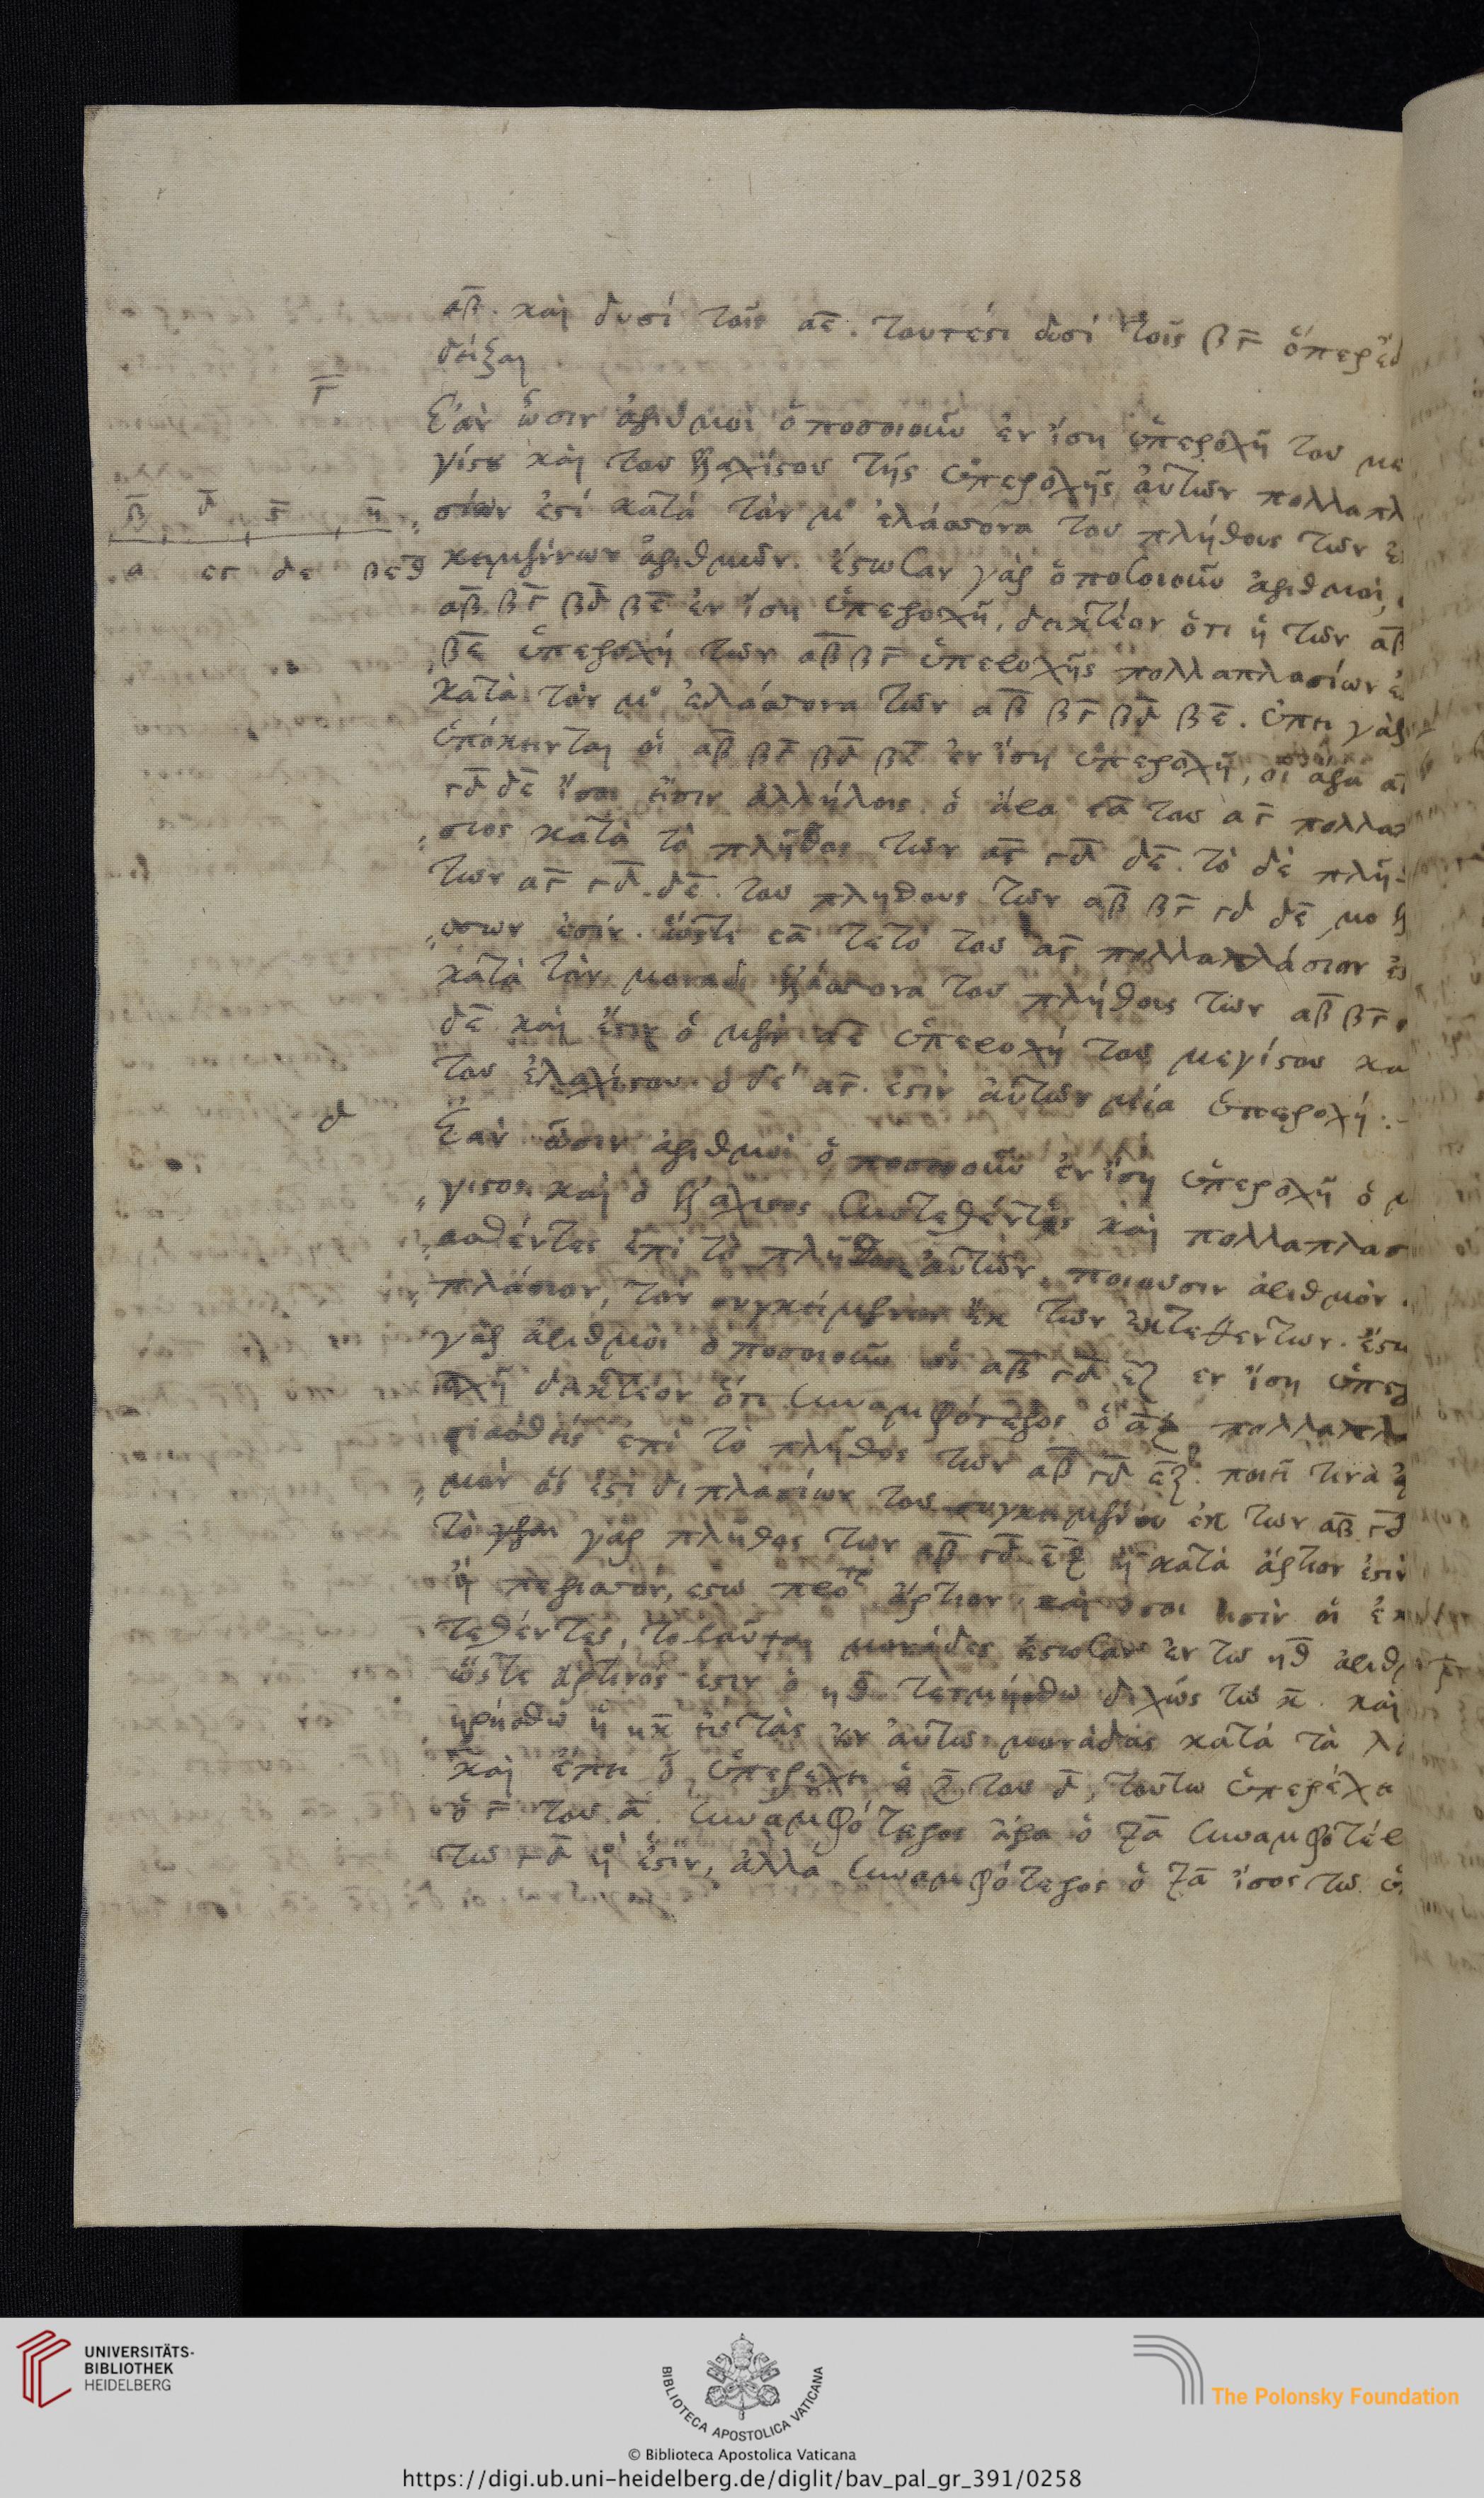 αβ. καὶ δυσί τοῖς αε. τουτέστι δυσί τοῖς βγ ὅπερ ἔδ
δείξαι
γ
Εἀν ὦσιν ἀριθμοὶ ὁποσοιοῦν ἐν ἴση ὑπεροχῆ του με
γίστου καὶ του ἐλαχίστου τῆς ὑπεροχῆς ἀυτῶν πολλαπλ
β δ ς η
σίων ἐστί κατά τὸν μο ἐλάσσονα του πλήθους των ἐ
α
κειμένων ἀριθμῶν. ἔστωσαν γὰρ ὁποσοιοῦν ἀριθμοὶ,
αβ βγ βδ βε ἐν ἴση ὑπεροχῆ, δεικτέον ὅτι ἡ των αβ
βε ὑπεροχή των αβ βγ ὑπεροχῆς πολλαπλασίων ἐ
κατὰ τὸν μο ἐλάσσονα των αβ βγ βδ βε. ἐπει γὰρ
ὑπόκεινται οἱ αβ βγ βδ βε ἐν ἴση ὑπεροχῆ, οἱ ἄρα α
γδ δε ἴσοι εἰσιν ἀλλήλοις. ὁ ἄρα εα του αγ πολλα
σιος κατὰ τὸ πλῆθος των αγ γδ δε. τὸ δὲ πλῆ
των αγ γδ. δε. του πληθους των αβ βγ γδ δε
εα του αγ πολλαπλάσιον ἐσ
κατὰ τὸν μοναδι ἐλάσσονα του πλήθους των αβ βγ
δε καὶ ἔστιν ὁ μὲν αε ὑπεροχή του μεγίστου κα
του ἐλαχίστου. ὁ δέ αγ. ἐστὶν ἀυτῶν μία ὑπεροχή:-
δ
Εαν ὦσιν ἀριθμοὶ ὁποσοιοῦν ἐν ἴση ὑπεροχῆ ὁ μ
γιστος καὶ ὁ ἐλαχιστος συντεθέντες καὶ πολλαπλασ
σθέντες ἐπὶ τὸ πλῆθος ἀυτῶν, ποιουσιν ἀριθμὸν
πλάσιον, τὸν συγκείμενον ἐκ των ἐκτεθεντων. ἔστω
γὰρ ἀριθμοὶ ὁποσοιοῦν οἱ αβ γδ εζ εν ἴση ὑπερ
οχῆ δεικτέον ὅτι συναμφότερος ὁ αζ πολλαπλα
σιασθεὶς ἐπὶ τὸ πλῆθος των αβ γδ εζ. ποιεῖ τινὰ
μὸν ὅς ἐστὶ διπλασίων του συγκειμένου ἐκ των αβ γδ
τὸ γὰρ πλῆθος των αβ γδ εζ ἢ κατὰ ἄρτιον ἐστὶν
ἢ περισσὸν, εστω ἄρτιον καὶ ὅσοι εἰσὶν οἱ ἐκ
τεθέντες, τοσαῦται μονάδες ἔστωσαν ἐν τω ηθ ἀριθμ
ὥστε ἄρτιος ἐστιν ὁ ηθ τετμήσθω διχῶς τω κ. καὶ
ηρήσθω ἡ ηκ εἰς τὰς ἐν ἀυτω μονάδας κατὰ τὰ λ
καὶ ἐπει ὁ ὑπερεχει ὁ ζ του δ, τούτω ὑπερέχει
ὁ γ του α. συναμφότερος ἄρα ὁ ζα συναμφοτέρ
τω γδ ἐστιν, ἀλλὰ συναμφότερος ὁ ζα ἴσος τω
UNIVERSITÄTS-
BIBLIOTHEK
HEIDELBERG
BIBLIOTECA APOSTOLICA VATICANA
The Polonsky Foundation
© Biblioteca Apostolica Vaticana
https://digi.ub.uni-heidelberg.de/diglit/bav_pal_gr_391/0258